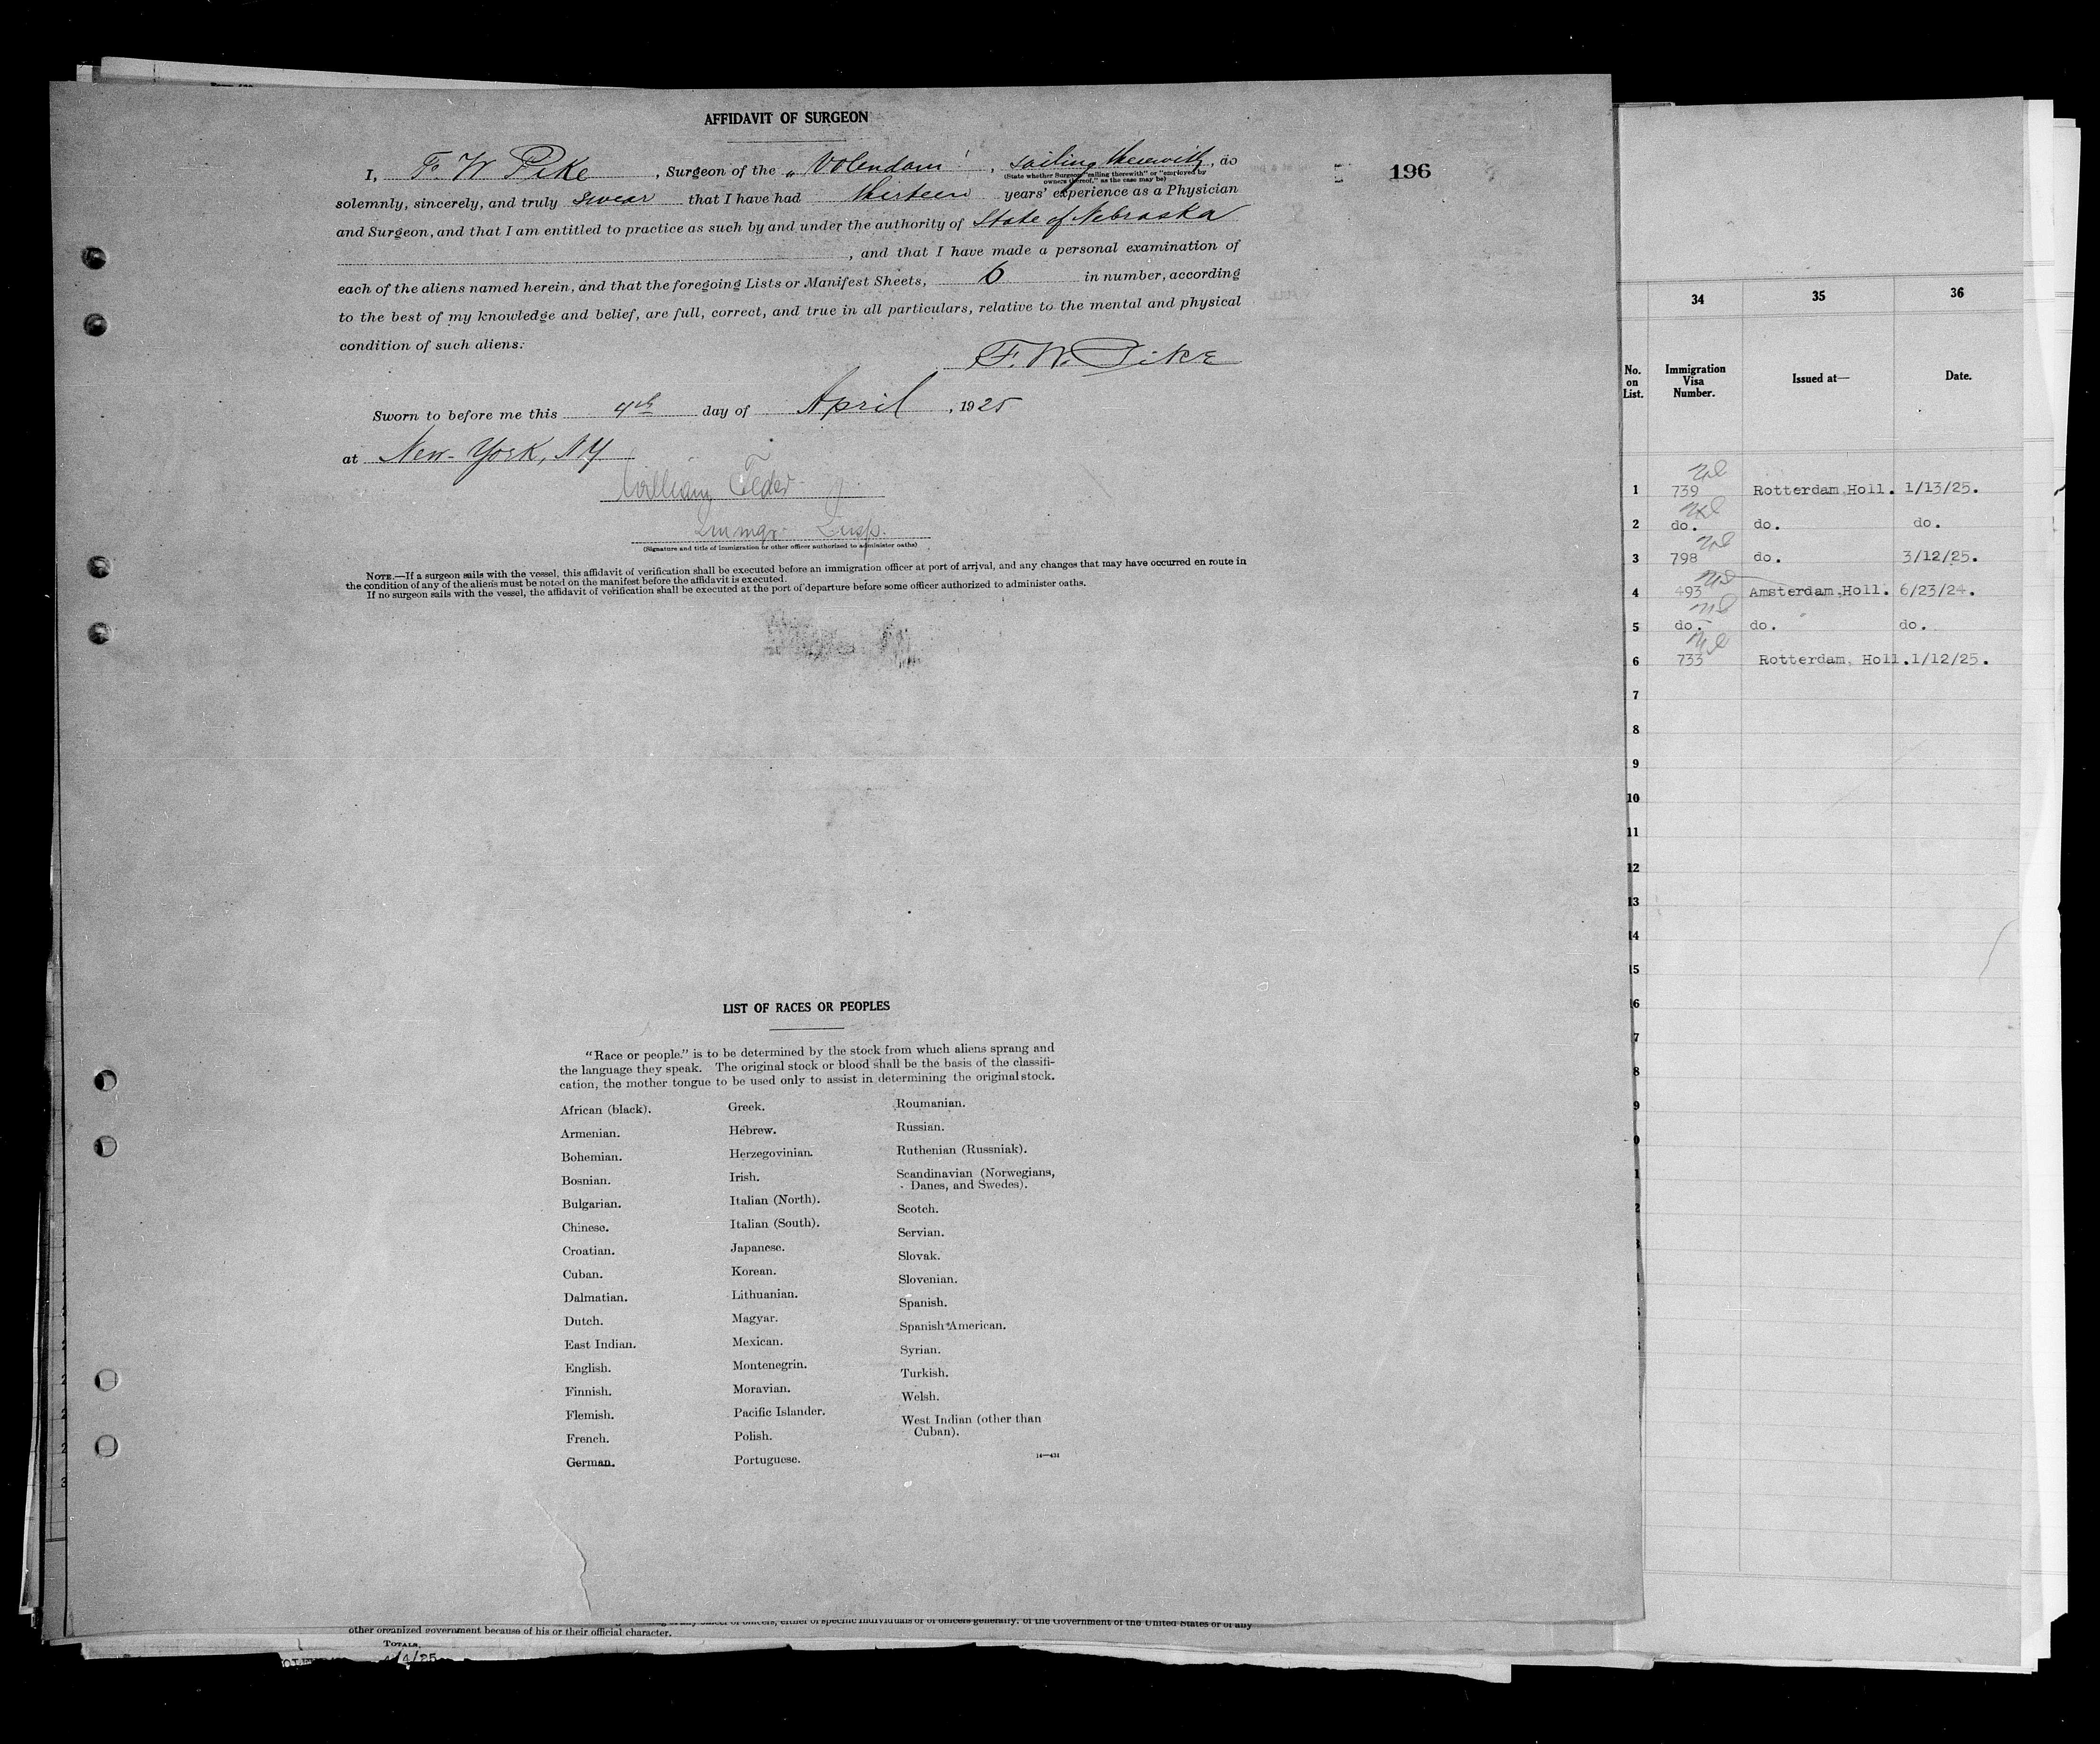 AFFIDAVIT OF SURGEON
I, F. W. Pike, Surgeon of the "Volendam", sailing therewith, do
(State whether Surgeon "sailing therewith" or "employed by
owners thereof," as the case may be)
solemnly, sincerely, and truly swear that I have had thirteen years' experience as a Physician
and Surgeon, and that I am entitled to practice as such by and under the authority of State of Nebraska
, and that I have made a personal examination of
each of the aliens named herein, and that the foregoing Lists or Manifest Sheets, 6 in number, according
to the best of my knowledge and belief, are full, correct, and true in all particulars, relative to the mental and physical
condition of such aliens.
F. W. Pike
Sworn to before me this 4th day of April, 1925
at New-York, NY
William
Immgr. Insp.
(Signature and title of immigration or other officer authorized to administer oaths)
NOTE.—If a surgeon sails with the vessel, this affidavit of verification shall be executed before an immigration officer at port of arrival, and any changes that may have occurred en route in
the condition of any of the aliens must be noted on the manifest before the affidavit is executed.
If no surgeon sails with the vessel, the affidavit of verification shall be executed at the port of departure before some officer authorized to administer oaths.
196
LIST OF RACES OR PEOPLES
"Race or people" is to be determined by the stock from which aliens sprang and
the language they speak. The original stock or blood shall be the basis of the classifi-
cation, the mother tongue to be used only to assist in determining the original stock.
African (black).
Armenian.
Bohemian.
Bosnian.
Bulgarian.
Chinese.
Croatian.
Cuban.
Dalmatian.
Dutch.
East Indian.
English.
Finnish.
Flemish.
French.
German.
Greek.
Hebrew.
Herzegovinian.
Irish.
Italian (North).
Italian (South).
Japanese.
Korean.
Lithuanian.
Magyar.
Mexican.
Montenegrin.
Moravian.
Pacific Islander.
Polish.
Portuguese.
Roumanian.
Russian.
Ruthenian (Russniak).
Scandinavian (Norwegians,
Danes, and Swedes).
Scotch.
Servian.
Slovak.
Slovenian.
Spanish.
Spanish American.
Syrian.
Turkish.
Welsh.
West Indian (other than
Cuban).
14—434
other organized government because of his or their official character.
TOTALS
4/4/25
34 35 36
No. on List. Immigration Visa Number. Issued at— Date.
1 739 Rotterdam Holl. 1/13/25.
2 do. do. do.
3 798 do. 3/12/25.
4 493 Amsterdam Holl. 6/23/24.
5 do. do. do.
6 733 Rotterdam, Holl. 1/12/25.
7
8
9
10
11
12
13
14
15
16
7
8
9
0
1
2